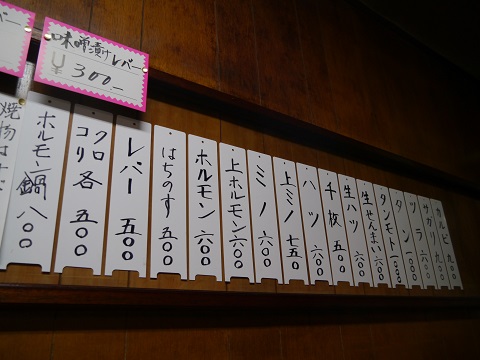 味噌漬けレバー
¥300-
カルビ 九〇〇
サガリ 六〇〇
ツラ 六〇〇
タン 一〇〇〇
タンモト 一〇〇〇
生せんまい 六〇〇
生ハツ 六〇〇
千枚 五〇〇
ハツ 六〇〇
上ミノ 七五〇
ミノ 六〇〇
上ホルモン 六〇〇
ホルモン 六〇〇
はちのす 五〇〇
レバー 五〇〇
クロコリ各 五〇〇
ホルモン鍋 八〇〇
焼物は